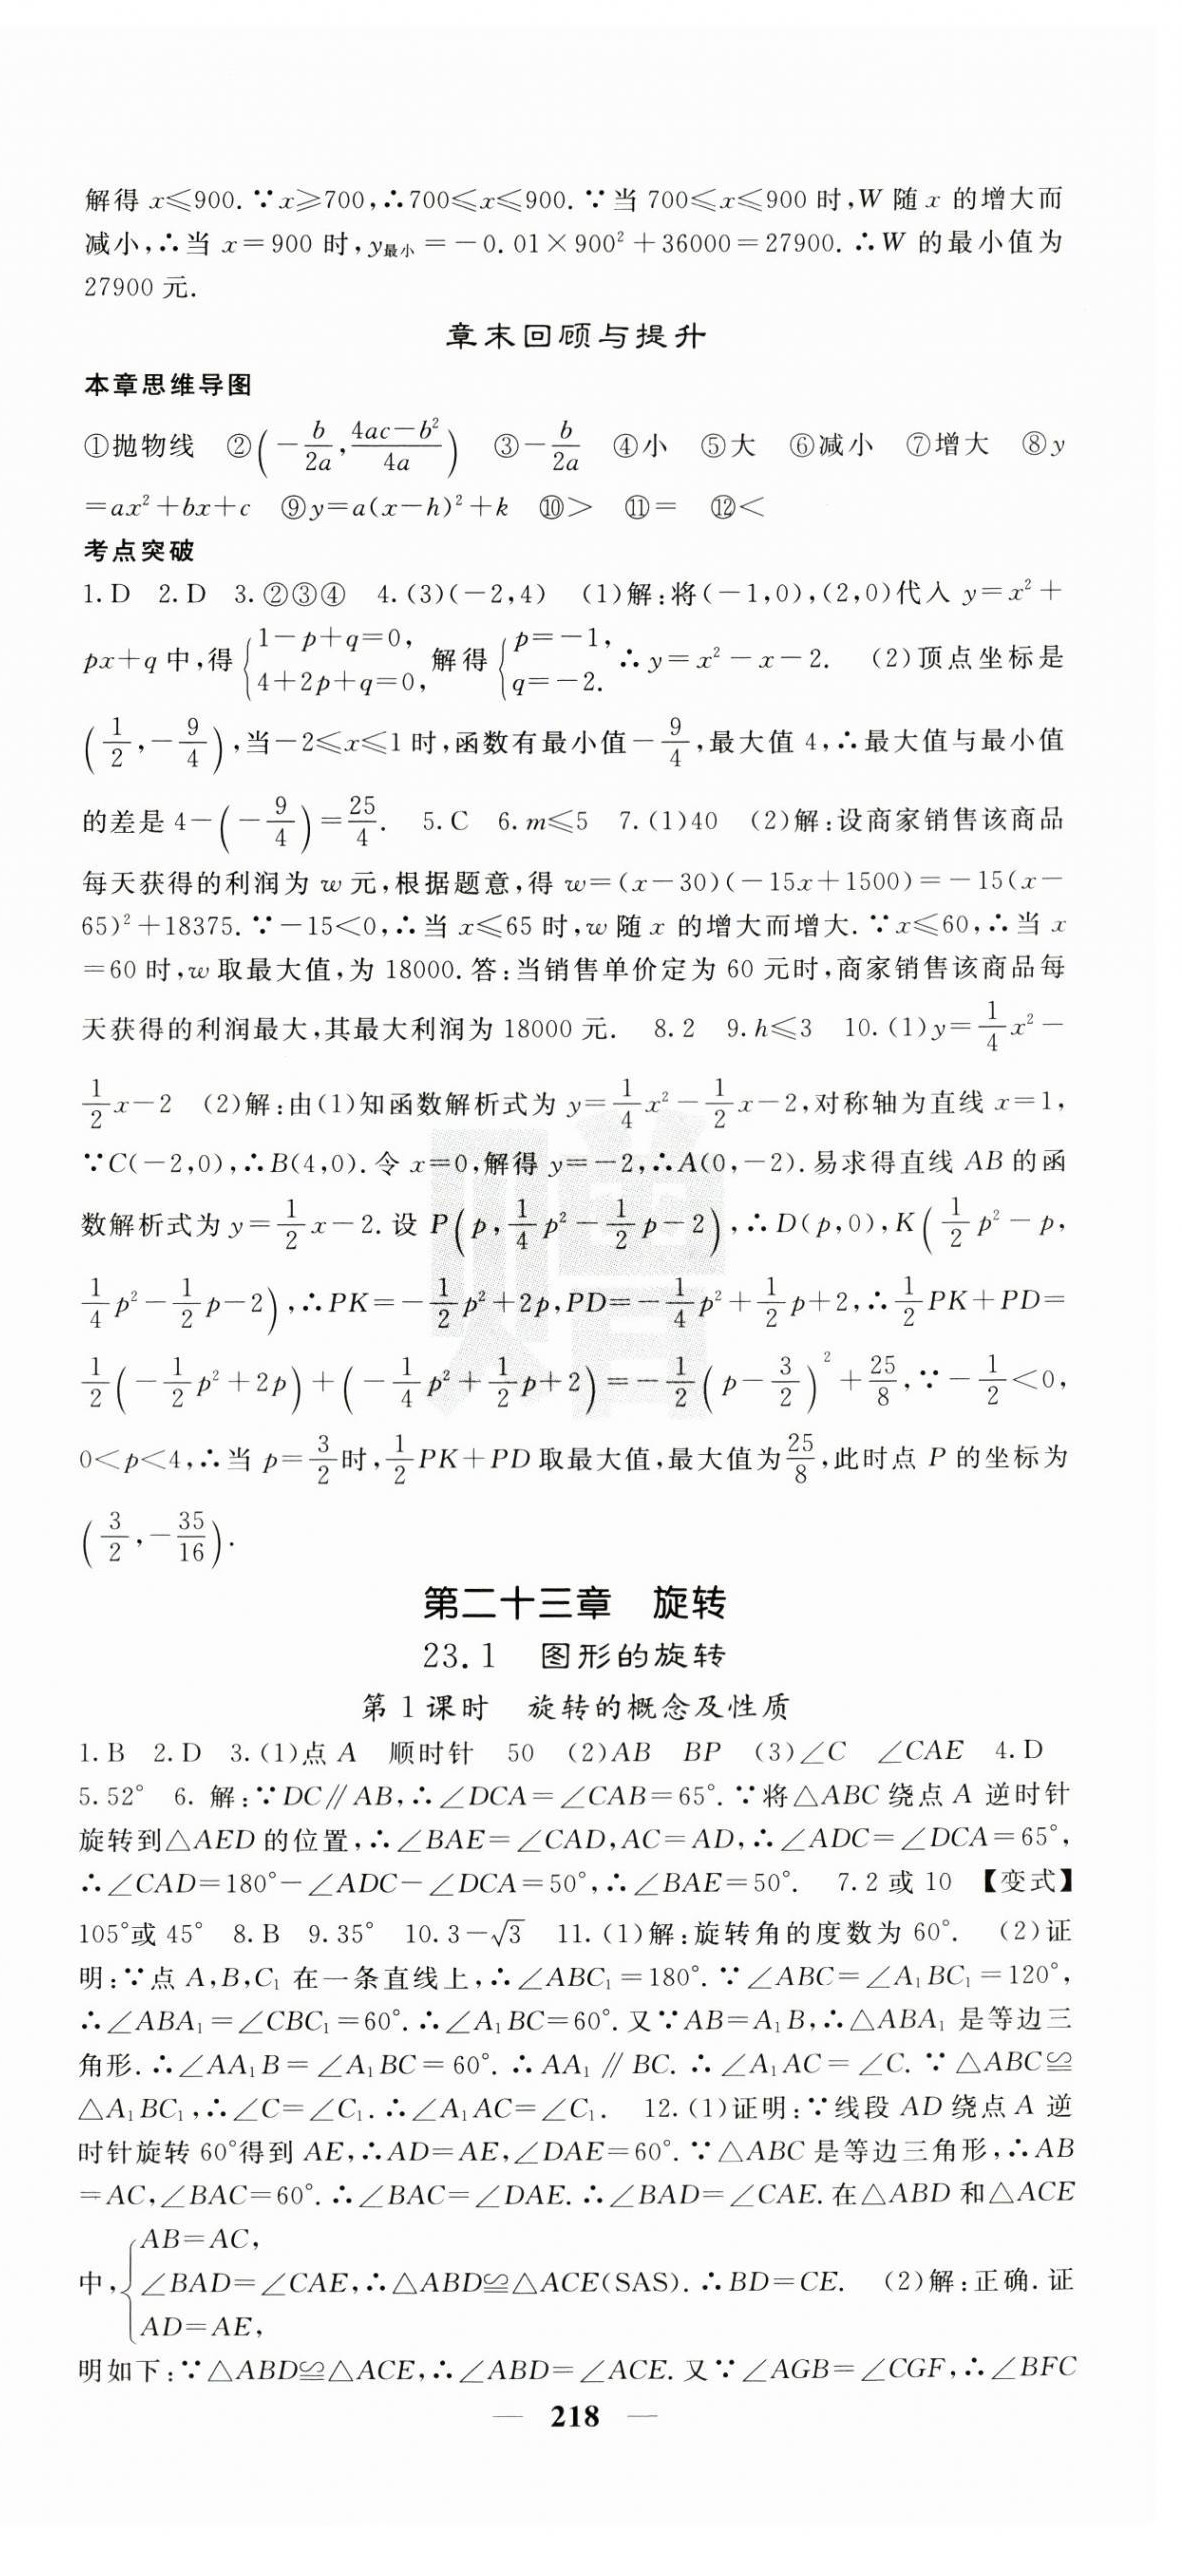 解得 x≤900.∵x≥700,∴700≤x≤900.∵当 700≤x≤900 时,W 随 x 的增大而
减小,∴当 x=900 时,y最小=-0.01×900²+36000=27900.∴W 的最小值为
27900 元.
章末回顾与提升
本章思维导图
①抛物线 ②(-b/2a,(4ac-b²)/4a) ③-b/2a ④小 ⑤大 ⑥减小 ⑦增大 ⑧y
=ax²+bx+c ⑨y=a(x-h)²+k ⑩> ⑪= ⑫<
考点突破
1.D 2.D 3.②③④ 4.(3)(-2,4) (1)解:将(-1,0),(2,0)代入 y=x²+
px+q 中,得{1-p+q=0, 4+2p+q=0, 解得{p=-1, q=-2. ∴y=x²-x-2. (2)顶点坐标是
(1/2,-9/4),当-2≤x≤1时,函数有最小值-9/4,最大值 4,∴最大值与最小值
的差是 4-(-9/4)=25/4. 5.C 6.m≤5 7.(1)40 (2)解:设商家销售该商品
每天获得的利润为 w 元,根据题意,得 w=(x-30)(-15x+1500)=-15(x-
65)²+18375.∵-15<0,∴当 x≤65 时,w 随 x 的增大而增大.∵x≤60,∴当 x
=60 时,w 取最大值,为 18000.答:当销售单价定为 60 元时,商家销售该商品每
天获得的利润最大,其最大利润为 18000 元. 8.2 9.h≤3 10.(1)y=1/4x²-
1/2x-2 (2)解:由(1)知函数解析式为 y=1/4x²-1/2x-2,对称轴为直线 x=1,
∵C(-2,0),∴B(4,0).令 x=0,解得 y=-2,∴A(0,-2).易求得直线 AB 的函
数解析式为 y=1/2x-2.设 P(p,1/4p²-1/2p-2),∴D(p,0),K(1/2p²-p,
1/4p²-1/2p-2),∴PK=-1/2p²+2p,PD=-1/4p²+1/2p+2,∴1/2PK+PD=
1/2(-1/2p²+2p)+(-1/4p²+1/2p+2)=-1/2(p-3/2)²+25/8,∵-1/2<0,
0<p<4,∴当 p=3/2时,1/2PK+PD取最大值,最大值为25/8,此时点 P 的坐标为
(3/2,-35/16).
赠
第二十三章 旋转
23.1 图形的旋转
第1课时 旋转的概念及性质
1.B 2.D 3.(1)点 A 顺时针 50 (2)AB BP (3)∠C ∠CAE 4.D
5.52° 6. 解:∵DC∥AB,∴∠DCA=∠CAB=65°.∵将△ABC 绕点 A 逆时针
旋转到△AED 的位置,∴∠BAE=∠CAD,AC=AD,∴∠ADC=∠DCA=65°,
∴∠CAD=180°-∠ADC-∠DCA=50°,∴∠BAE=50°. 7.2 或 10 【变式】
105°或 45° 8.B 9.35° 10.3-√3 11.(1)解:旋转角的度数为 60°. (2)证
明:∵点 A,B,C₁ 在一条直线上,∴∠ABC₁=180°.∵∠ABC=∠A₁BC₁=120°,
∴∠ABA₁=∠CBC₁=60°.∴∠A₁BC=60°.又∵AB=A₁B,∴△ABA₁ 是等边三
角形.∴∠AA₁B=∠A₁BC=60°.∴AA₁∥BC.∴∠A₁AC=∠C.∵△ABC≌
△A₁BC₁,∴∠C=∠C₁.∴∠A₁AC=∠C₁. 12.(1)证明:∵线段 AD 绕点 A 逆
时针旋转 60°得到 AE,∴AD=AE,∠DAE=60°.∵△ABC 是等边三角形,∴AB
=AC,∠BAC=60°.∴∠BAC=∠DAE.∴∠BAD=∠CAE.在△ABD 和△ACE
中,{AB=AC, ∠BAD=∠CAE, AD=AE, ∴△ABD≌△ACE(SAS).∴BD=CE. (2)解:正确.证
明如下:∵△ABD≌△ACE,∴∠ABD=∠ACE.又∵∠AGB=∠CGF,∴∠BFC
— 218 —